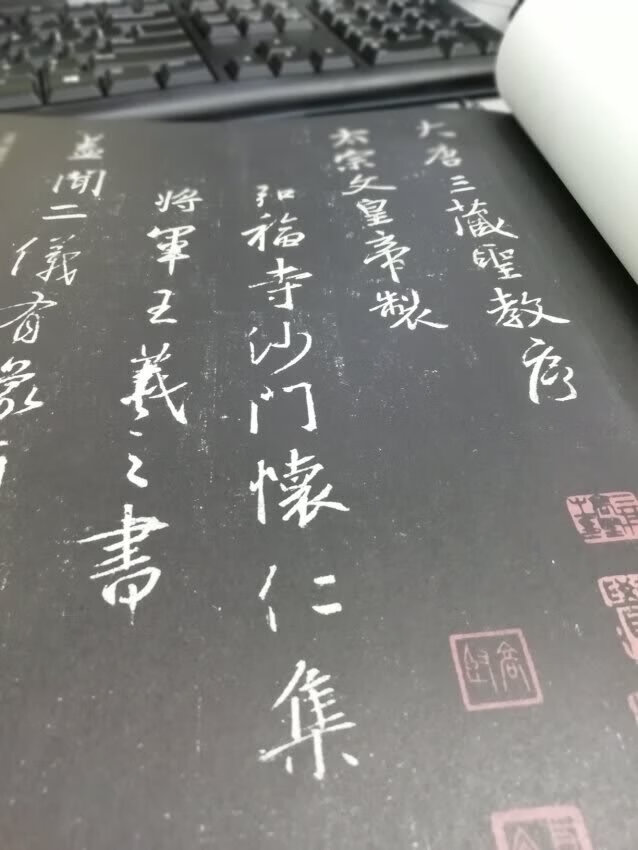 大唐三藏聖教序
太宗文皇帝製
弘福寺沙門懷仁集
將軍王羲之書
蓋聞二儀有象